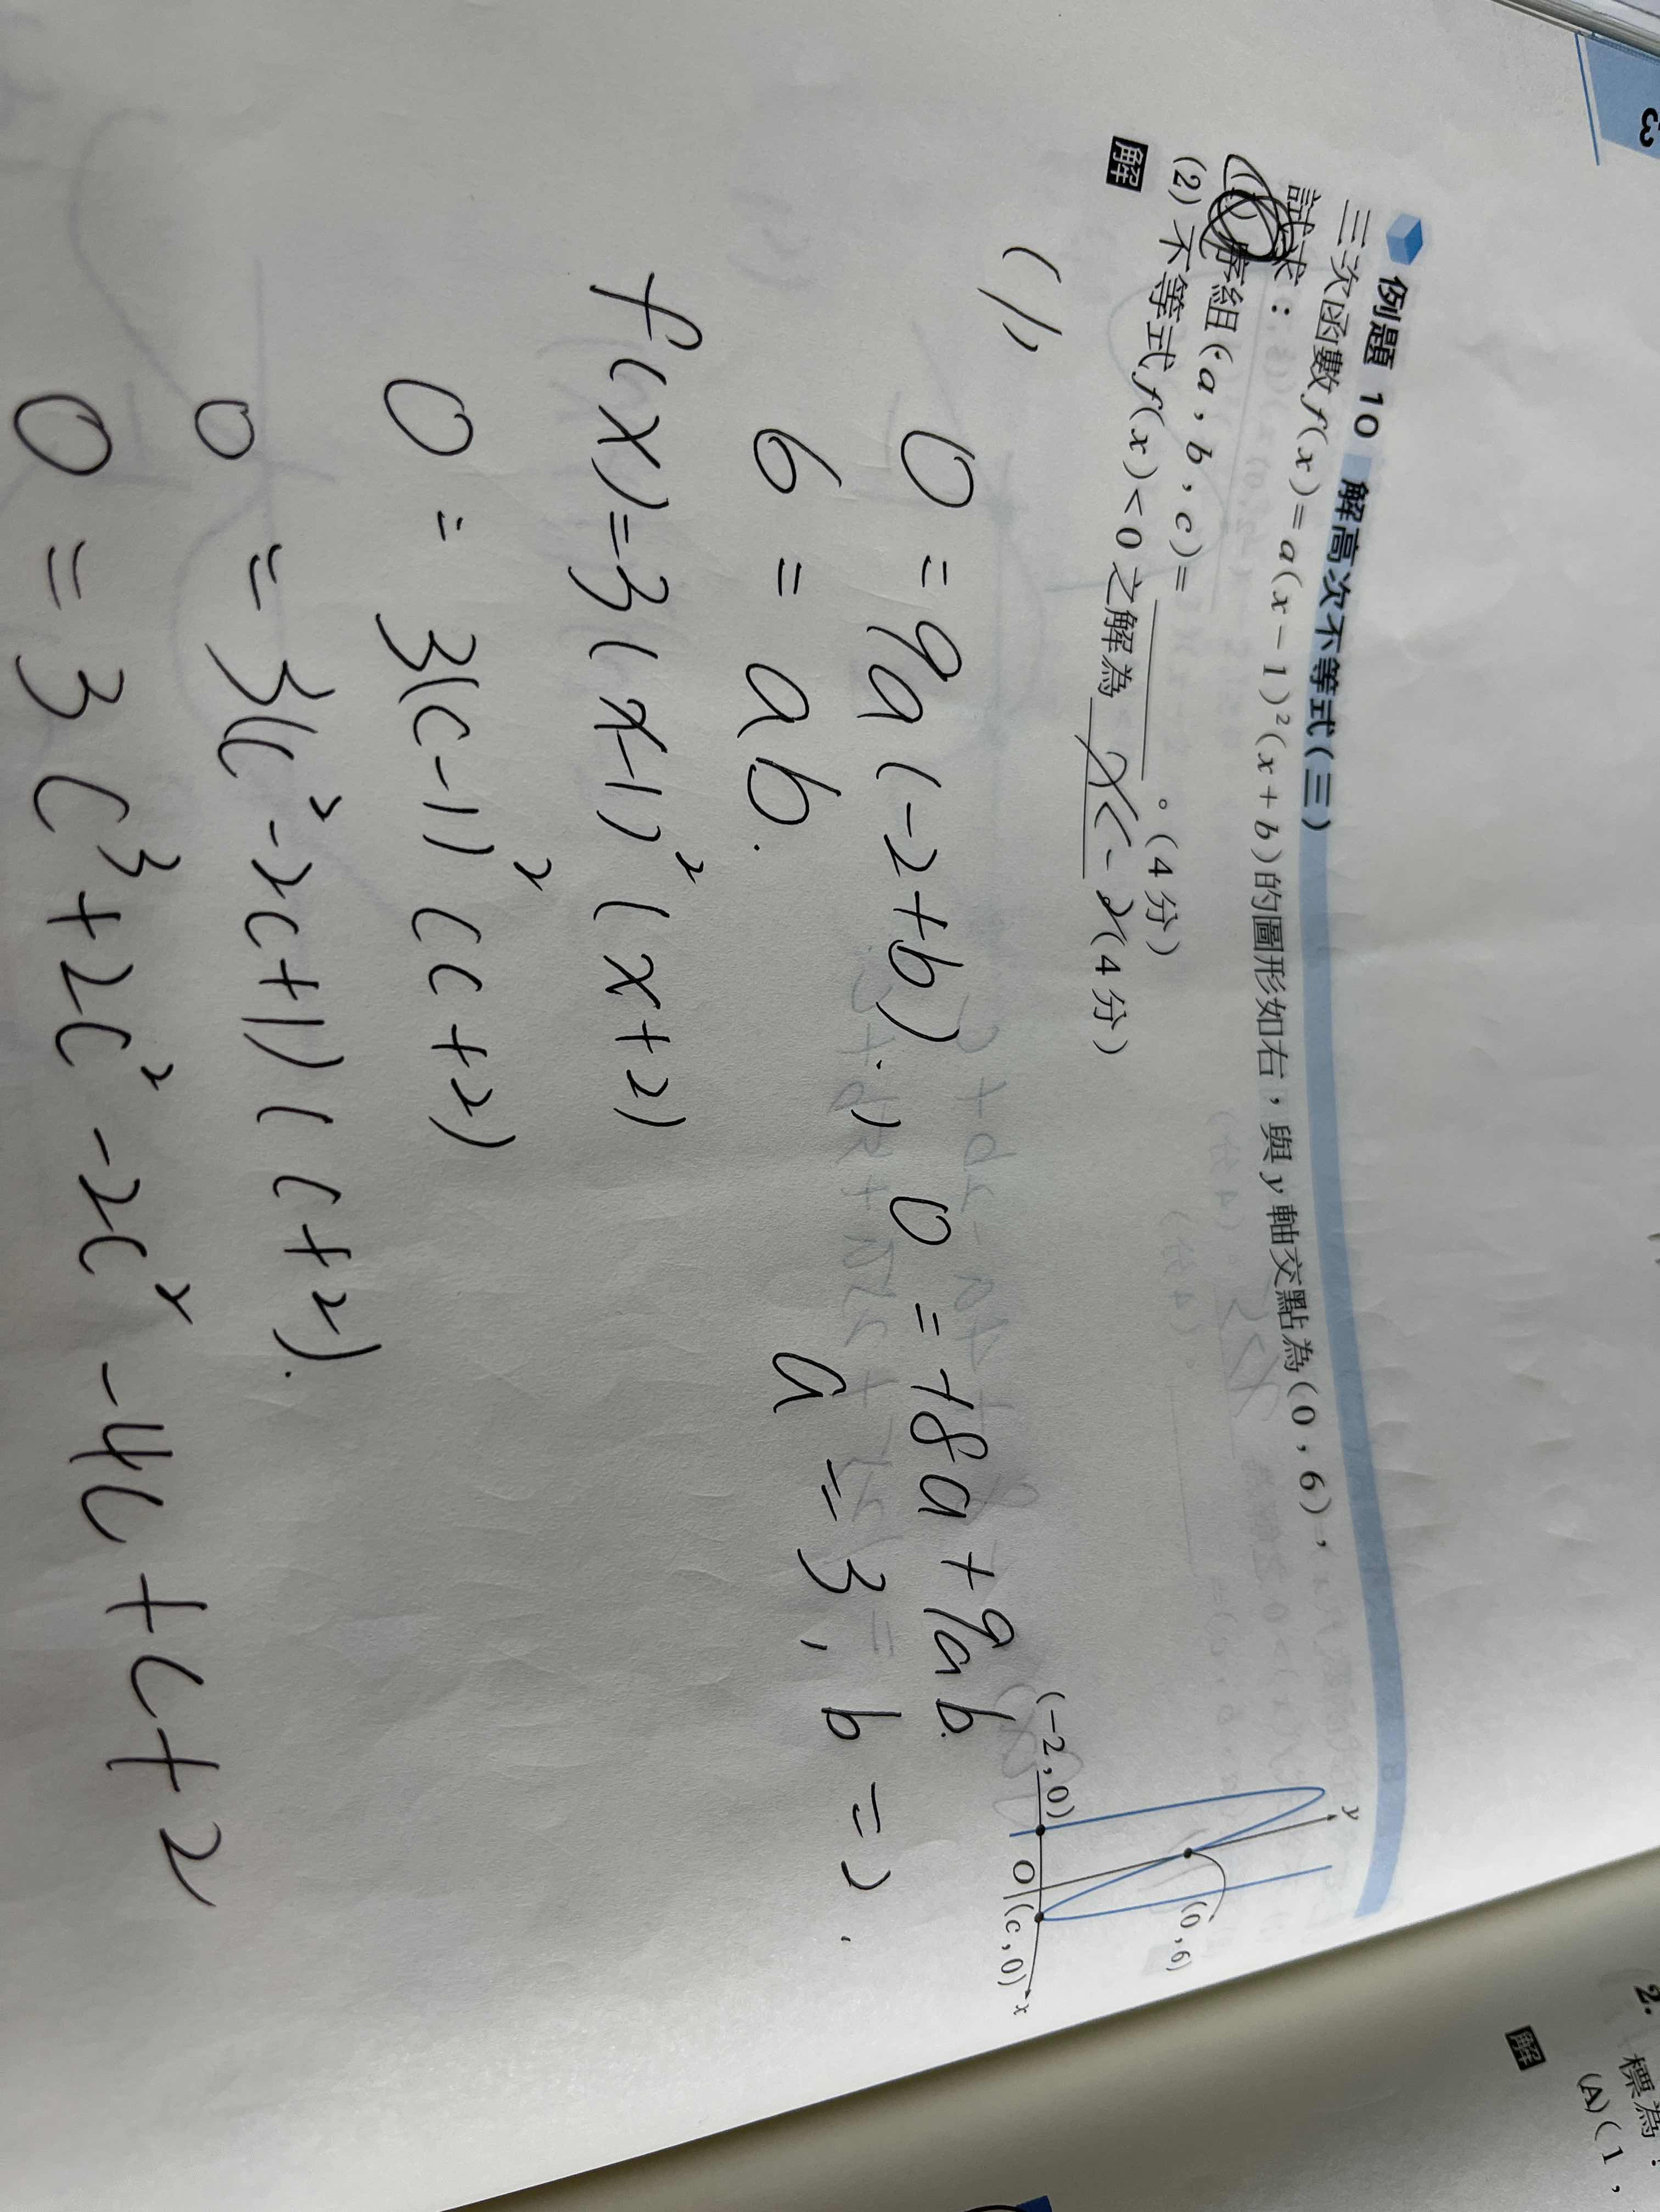 3
例題 10 解高次不等式(三)
三次函數 f(x)=a(x-1)²(x+b)的圖形如右，與 y 軸交點為(0,6)，
試求：
序組(a,b,c)=______。(4分)
(2)不等式 f(x)<0 之解為 x<-2 (4分)
解
y
(0,6)
(-2,0)
O
(c,0)
x
(1)
0 = 9a(-2+b). , 0 = -18a+9ab.
6 = ab. a=3, b=2.
f(x)=3(x-1)²(x+2)
0 = 3(c-1)²(c+2)
0 = 3(c²-2c+1)(c+2).
0 = 3c³+2c²-2c²-4c+c+2
2.
標為
解
(A)(1,